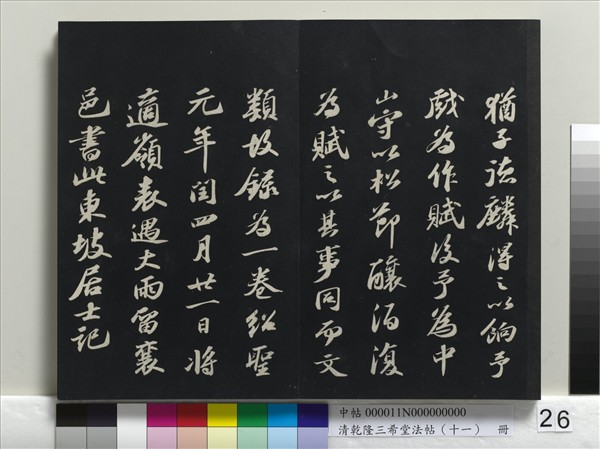 猶子德麟得之以餉予
戲為作賦後予為中
山守以松節釀酒復
為賦之以其事同而文
類故錄為一卷紹聖
元年閏四月廿一日將
適嶺表遇大雨留襄
邑書此東坡居士記
中帖 000011N000000000
清乾隆三希堂法帖(十一) 冊
26